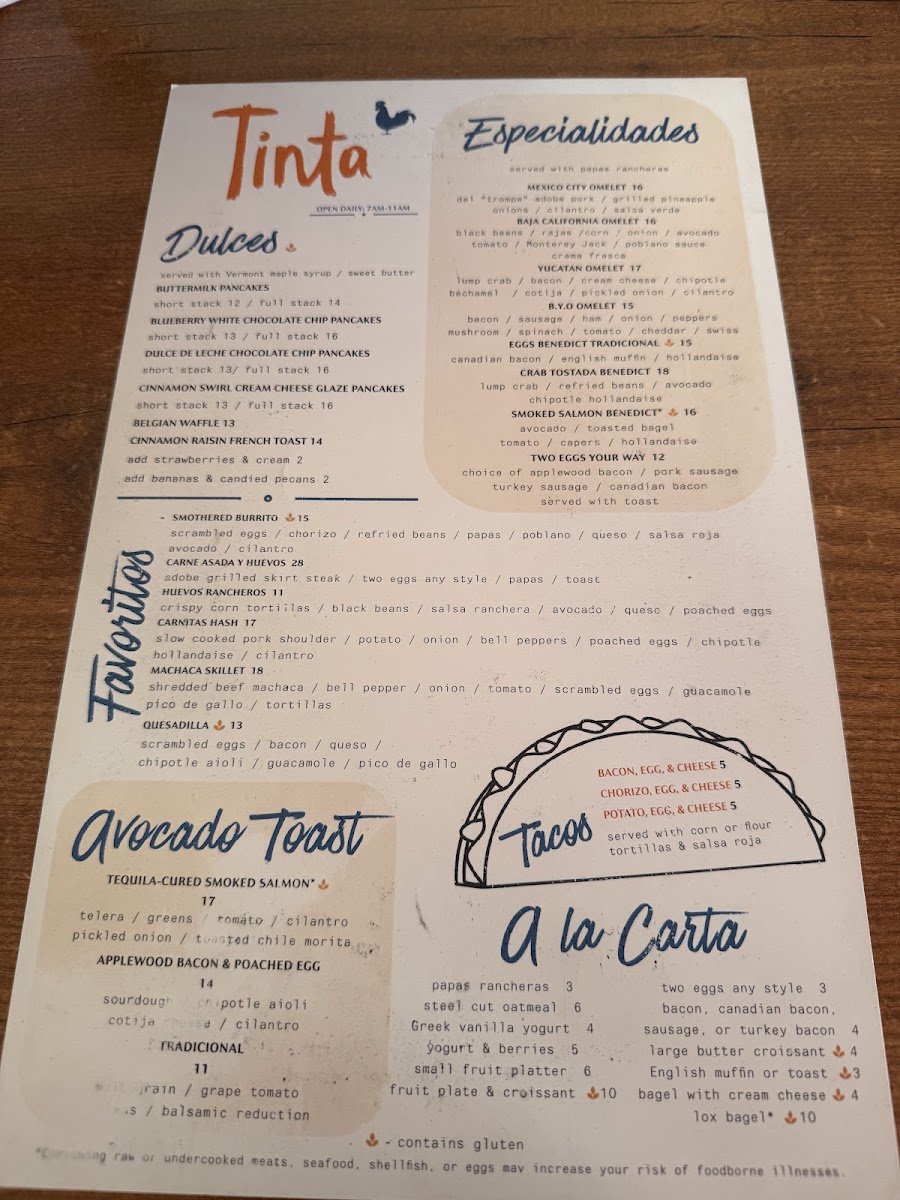 Tinta
OPEN DAILY: 7AM-11AM
Dulces
served with Vermont maple syrup / sweet butter
BUTTERMILK PANCAKES
short stack 12 / full stack 14
BLUEBERRY WHITE CHOCOLATE CHIP PANCAKES
short stack 13 / full stack 16
DULCE DE LECHE CHOCOLATE CHIP PANCAKES
short stack 13/ full stack 16
CINNAMON SWIRL CREAM CHEESE GLAZE PANCAKES
short stack 13 / full stack 16
BELGIAN WAFFLE 13
CINNAMON RAISIN FRENCH TOAST 14
add strawberries & cream 2
add bananas & candied pecans 2
Especialidades
served with papas rancheras
MEXICO CITY OMELET 16
del "trompo" adobe pork / grilled pineapple
onions / cilantro / salsa verde
BAJA CALIFORNIA OMELET 16
black beans / rajas /corn / onion / avocado
tomato / Monterey Jack / poblano sauce
crema fresca
YUCATAN OMELET 17
lump crab / bacon / cream cheese / chipotle
béchamel / cotija / pickled onion / cilantro
B.Y.O OMELET 15
bacon / sausage / ham / onion / peppers
mushroom / spinach / tomato / cheddar / swiss
EGGS BENEDICT TRADICIONAL 15
canadian bacon / english muffin / hollandaise
CRAB TOSTADA BENEDICT 18
lump crab / refried beans / avocado
chipotle hollandaise
SMOKED SALMON BENEDICT* 16
avocado / toasted bagel
tomato / capers / hollandaise
TWO EGGS YOUR WAY 12
choice of applewood bacon / pork sausage
turkey sausage / canadian bacon
served with toast
Favoritos
- SMOTHERED BURRITO 15
scrambled eggs / chorizo / refried beans / papas / poblano / queso / salsa roja
avocado / cilantro
CARNE ASADA Y HUEVOS 28
adobe grilled skirt steak / two eggs any style / papas / toast
HUEVOS RANCHEROS 11
crispy corn tortillas / black beans / salsa ranchera / avocado / queso / poached eggs
CARNITAS HASH 17
slow cooked pork shoulder / potato / onion / bell peppers / poached eggs / chipotle
hollandaise / cilantro
MACHACA SKILLET 18
shredded beef machaca / bell pepper / onion / tomato / scrambled eggs / guacamole
pico de gallo / tortillas
QUESADILLA 13
scrambled eggs / bacon / queso /
chipotle aioli / guacamole / pico de gallo
Tacos
BACON, EGG, & CHEESE 5
CHORIZO, EGG, & CHEESE 5
POTATO, EGG, & CHEESE 5
served with corn or flour
tortillas & salsa roja
Avocado Toast
TEQUILA-CURED SMOKED SALMON*
17
telera / greens / tomato / cilantro
pickled onion / toasted chile morita
APPLEWOOD BACON & POACHED EGG
14
sourdough chipotle aioli
cotija / cilantro
TRADICIONAL
11
grain / grape tomato
/ balsamic reduction
A la Carta
papas rancheras 3
steel cut oatmeal 6
Greek vanilla yogurt 4
yogurt & berries 5
small fruit platter 6
fruit plate & croissant 10
two eggs any style 3
bacon, canadian bacon,
sausage, or turkey bacon 4
large butter croissant 4
English muffin or toast 3
bagel with cream cheese 4
lox bagel* 10
- contains gluten
*Consuming raw or undercooked meats, seafood, shellfish, or eggs may increase your risk of foodborne illnesses.